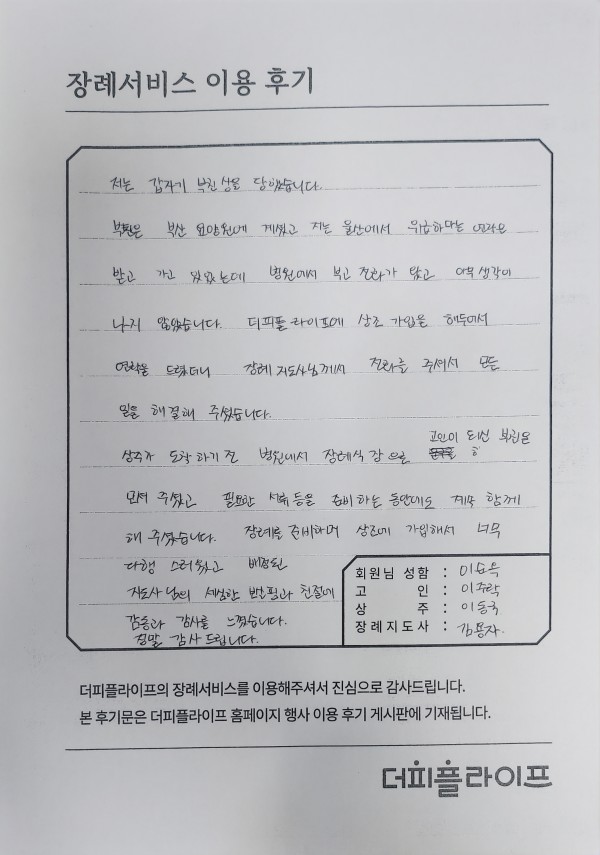 장례서비스 이용 후기
저는 갑자기 부친상을 당했습니다.
부친은 부산 요양원에 계셨고 저는 울산에서 위급하다는 연락을
받고 가고 있었는데 병원에서 부고 전화가 왔고 아무 생각이
나지 않았습니다. 더피플라이프에 상조 가입을 해두어서
연락을 드렸더니 장례지도사님께서 전화를 주셔서 모든
일을 해결해 주셨습니다.
상주가 도착하기 전 병원에서 장례식장으로 고인이 되신 부친을
모셔 주셨고 필요한 서류등을 준비하는 동안에도 계속 함께
해 주셨습니다. 장례를 준비하며 상조에 가입해서 너무
다행스러웠고 배정된
지도사님의 세심한 보살핌과 친절에
감동과 감사를 느꼈습니다.
정말 감사드립니다.
회원님 성함 :
고 인 : 이주락
상 주 : 이동국
장례지도사 : 김용자.
더피플라이프의 장례서비스를 이용해주셔서 진심으로 감사드립니다.
본 후기문은 더피플라이프 홈페이지 행사 이용 후기 게시판에 기재됩니다.
더피플라이프